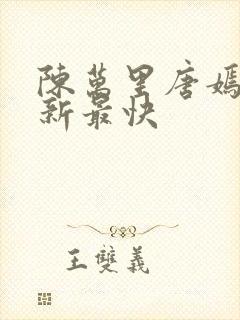 陳萬里唐嫣
新最快
王雙義